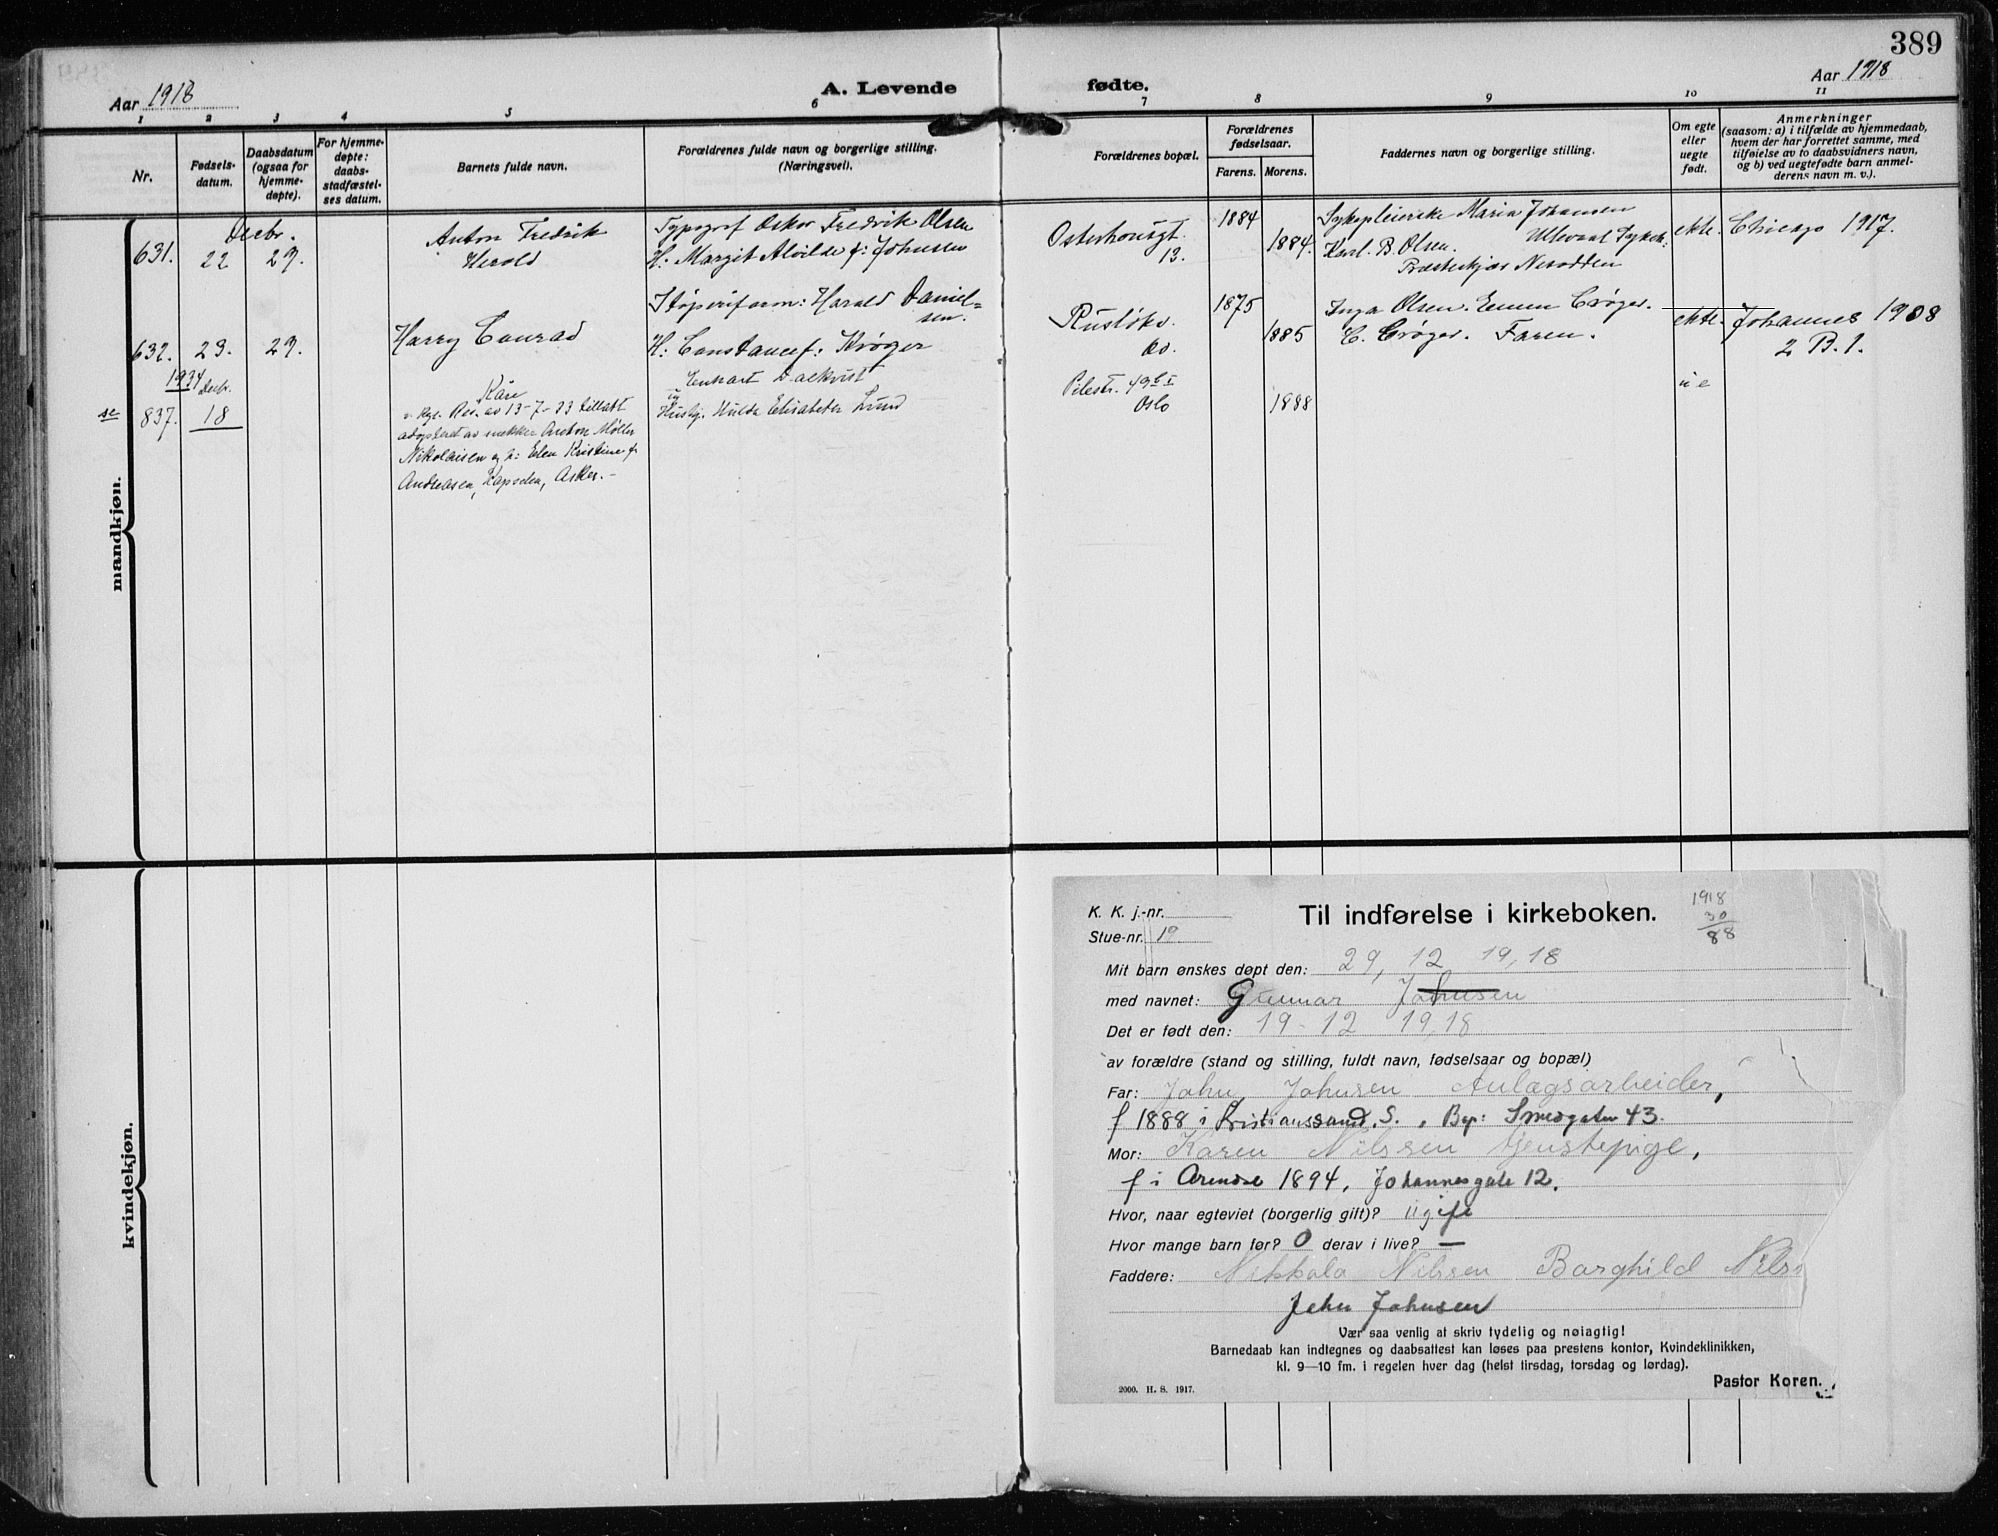 389
Aar 1918
A. Levende fødte.
Aar 1918
1 2 3 4 5 6 7 8 9 10 11
Nr.
Fødsels-
datum.
Daabsdatum
(ogsaa for
hjemme-
døpte).
For hjemme-
døpte:
daabs-
stadfæstel-
ses datum.
Barnets fulde navn.
Forældrenes fulde navn og borgerlige stilling.
(Næringsvei).
Forældrenes bopæl.
Forældrenes
fødselsaar.
Farens. Morens.
Faddernes navn og borgerlige stilling.
Om egte
eller
uegte
født.
Anmerkninger
(saasom: a) i tilfælde av hjemmedaab,
hvem der har forrettet samme, med
tilføielse av to daabsvidners navn,
og b) ved uegtefødte barn anmel-
derens navn m. v.).
mandkjøn.
Decbr.
631. 22 29.
Anton Fredrik
Harold
Typogrf Oskar Fredrik Olsen
H: Margit Alvilde f: Johnsen
13.
1884
1884.
Sykepleierske Maria Johansen
Ullevaal Sykeh.
Karl. B. Olsen.
Nesodden
ekte.
Chicago 1917.
632. 23. 29.
Harry Conrad
Harald Daniel=
sen.
H: Constance f: Krøger
Rusløkv.
1875
1885
Inga Olsen. Emma Crøger.
C. Crøger. Faren.
ekte.
Johannes 1908
2 B. 1.
1934
se 837.
Decbr.
18
Kåre
v. Kgl. Res. av 13-7-33 tillatt
adopteret av snekker Anton Møller
Nikolaisen og h: Elen Kristine f.
Andreasen, Asker.-
Dalkvist
og
Hustr. Hulda Elisabeth Lund
Pilestr. 49 b I
Oslo
1888
u e
kvindekjøn.
K. K. j.-nr.
Stue-nr. 19
Til indførelse i kirkeboken.
1918
30/88
Mit barn ønskes døpt den: 29, 12 19,18
med navnet: Gunnar Johnsen
Det er født den: 19-12 1918
av forældre (stand og stilling, fuldt navn, fødselsaar og bopæl)
Far: John Johnsen Anlægsarbeider,
f 1888 i Kristianssand. S., Bop: Smedgaten 43.
Mor: Karen Nilssen tjenstepige,
f i Arendal 1894, Johannesgate 12.
Hvor, naar egteviet (borgerlig gift)? ugift
Hvor mange barn før? 0 derav i live? —
Faddere: Nikkola Nilssen Borghild Nils
John Johnsen
Vær saa venlig at skriv tydelig og nøiagtig!
Barnedaab kan indtegnes og daabsattest kan løses paa prestens kontor, Kvindeklinikken,
kl. 9—10 fm. i regelen hver dag (helst tirsdag, torsdag og lørdag).
Pastor Koren.
2000. H. S. 1917.